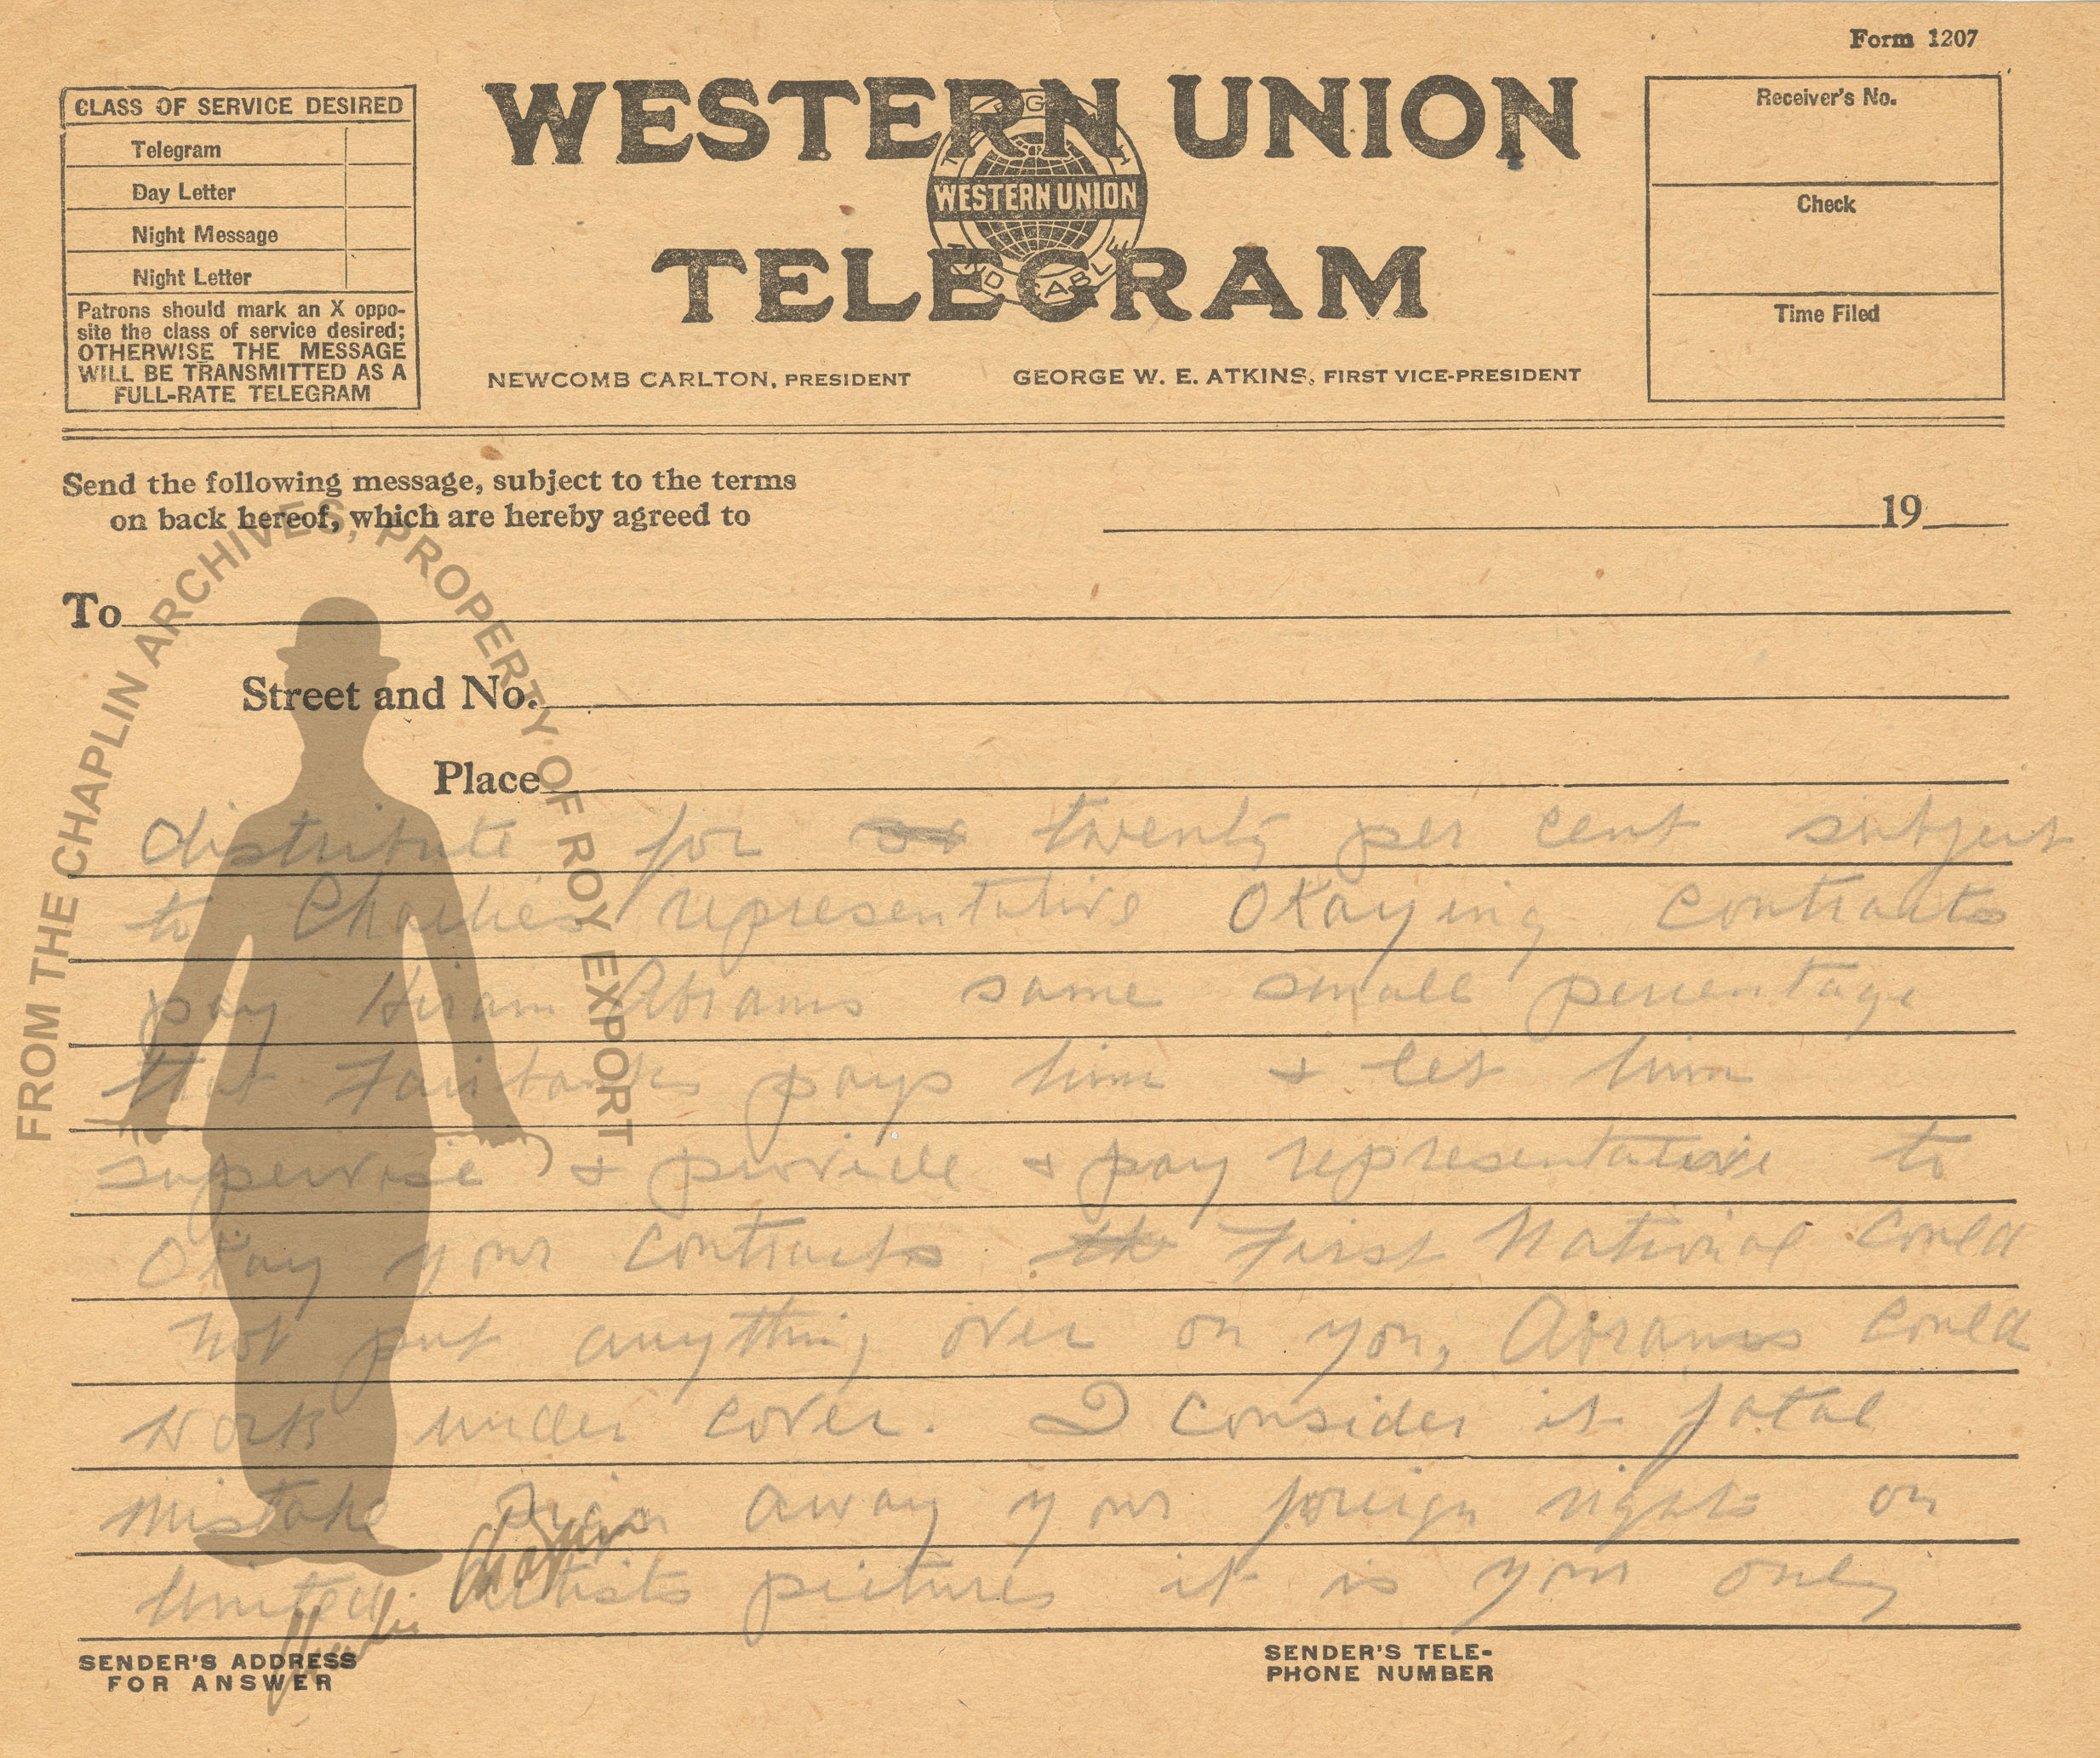 Form 1207
CLASS OF SERVICE DESIRED
Telegram
Day Letter
Night Message
Night Letter
Patrons should mark an X oppo-
site the class of service desired;
OTHERWISE THE MESSAGE
WILL BE TRANSMITTED AS A
FULL-RATE TELEGRAM
WESTERN UNION
WESTERN UNION
TELEGRAM
NEWCOMB CARLTON, PRESIDENT
GEORGE W. E. ATKINS, FIRST VICE-PRESIDENT
Receiver's No.
Check
Time Filed
Send the following message, subject to the terms
on back hereof, which are hereby agreed to
19
To
Street and No.
Place
FROM THE CHAPLIN ARCHIVES, PROPERTY OF ROY EXPORT
distribute for twenty per cent subject
to Charlies representative Okaying contracts
pay Hiram Abrams same small percentage
that Fairbanks pays him & let him
supervise & provide & pay representative to
Okay your contracts the First National could
not put anything over on you, Abrams could
work under cover. I consider it fatal
mistake away your foreign rights on
United Artists pictures it is your only
SENDER'S ADDRESS
FOR ANSWER
SENDER'S TELE-
PHONE NUMBER